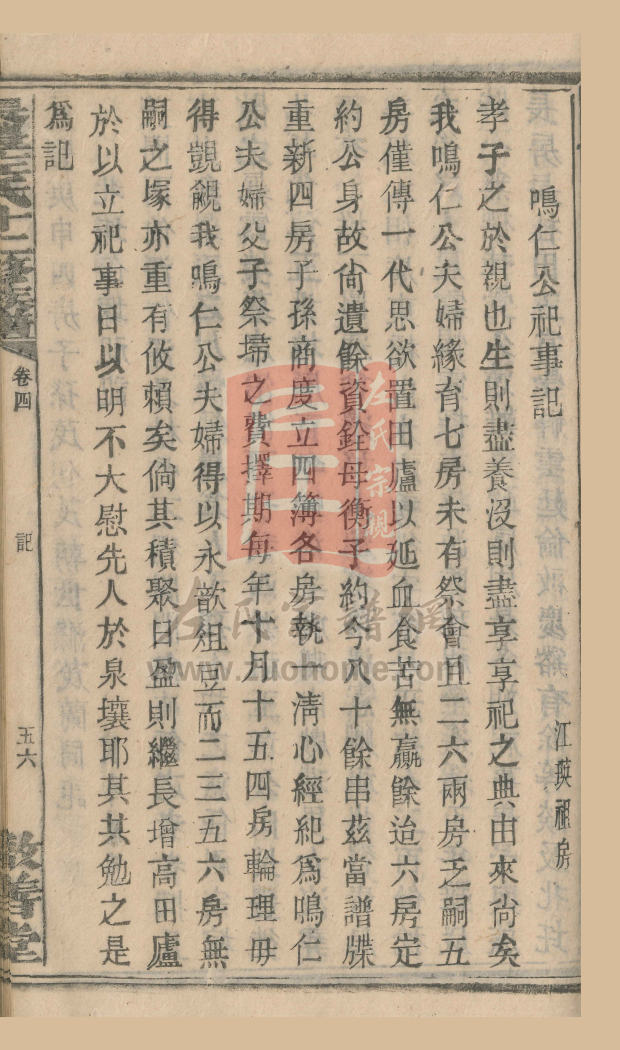 鳴仁公祀事記
江瑛祖房
孝子之於親也生則盡養沒則盡享享祀之典由來尙矣
我鳴仁公夫婦緣育七房未有祭會且二六兩房乏嗣五
房僅傳一代思欲置田廬以延血食苦無贏餘迨六房定
約公身故尙遺餘資銓母衡子約今八十餘串茲當譜牒
重新四房子孫商度立四簿各房執一淸心經紀爲鳴仁
公夫婦父子祭埽之費擇期每年十月十五四房輪理毋
得覬覦我鳴仁公夫婦得以永歆俎豆而二三五六房無
嗣之塚亦重有攸賴矣倘其積聚日盈則繼長增高田廬
於以立祀事日以明不大慰先人於泉壤耶其共勉之是
爲記
十二修族譜
卷四
記
五六
敦善堂
左氏宗親
左氏家譜網
www.zuohome.com